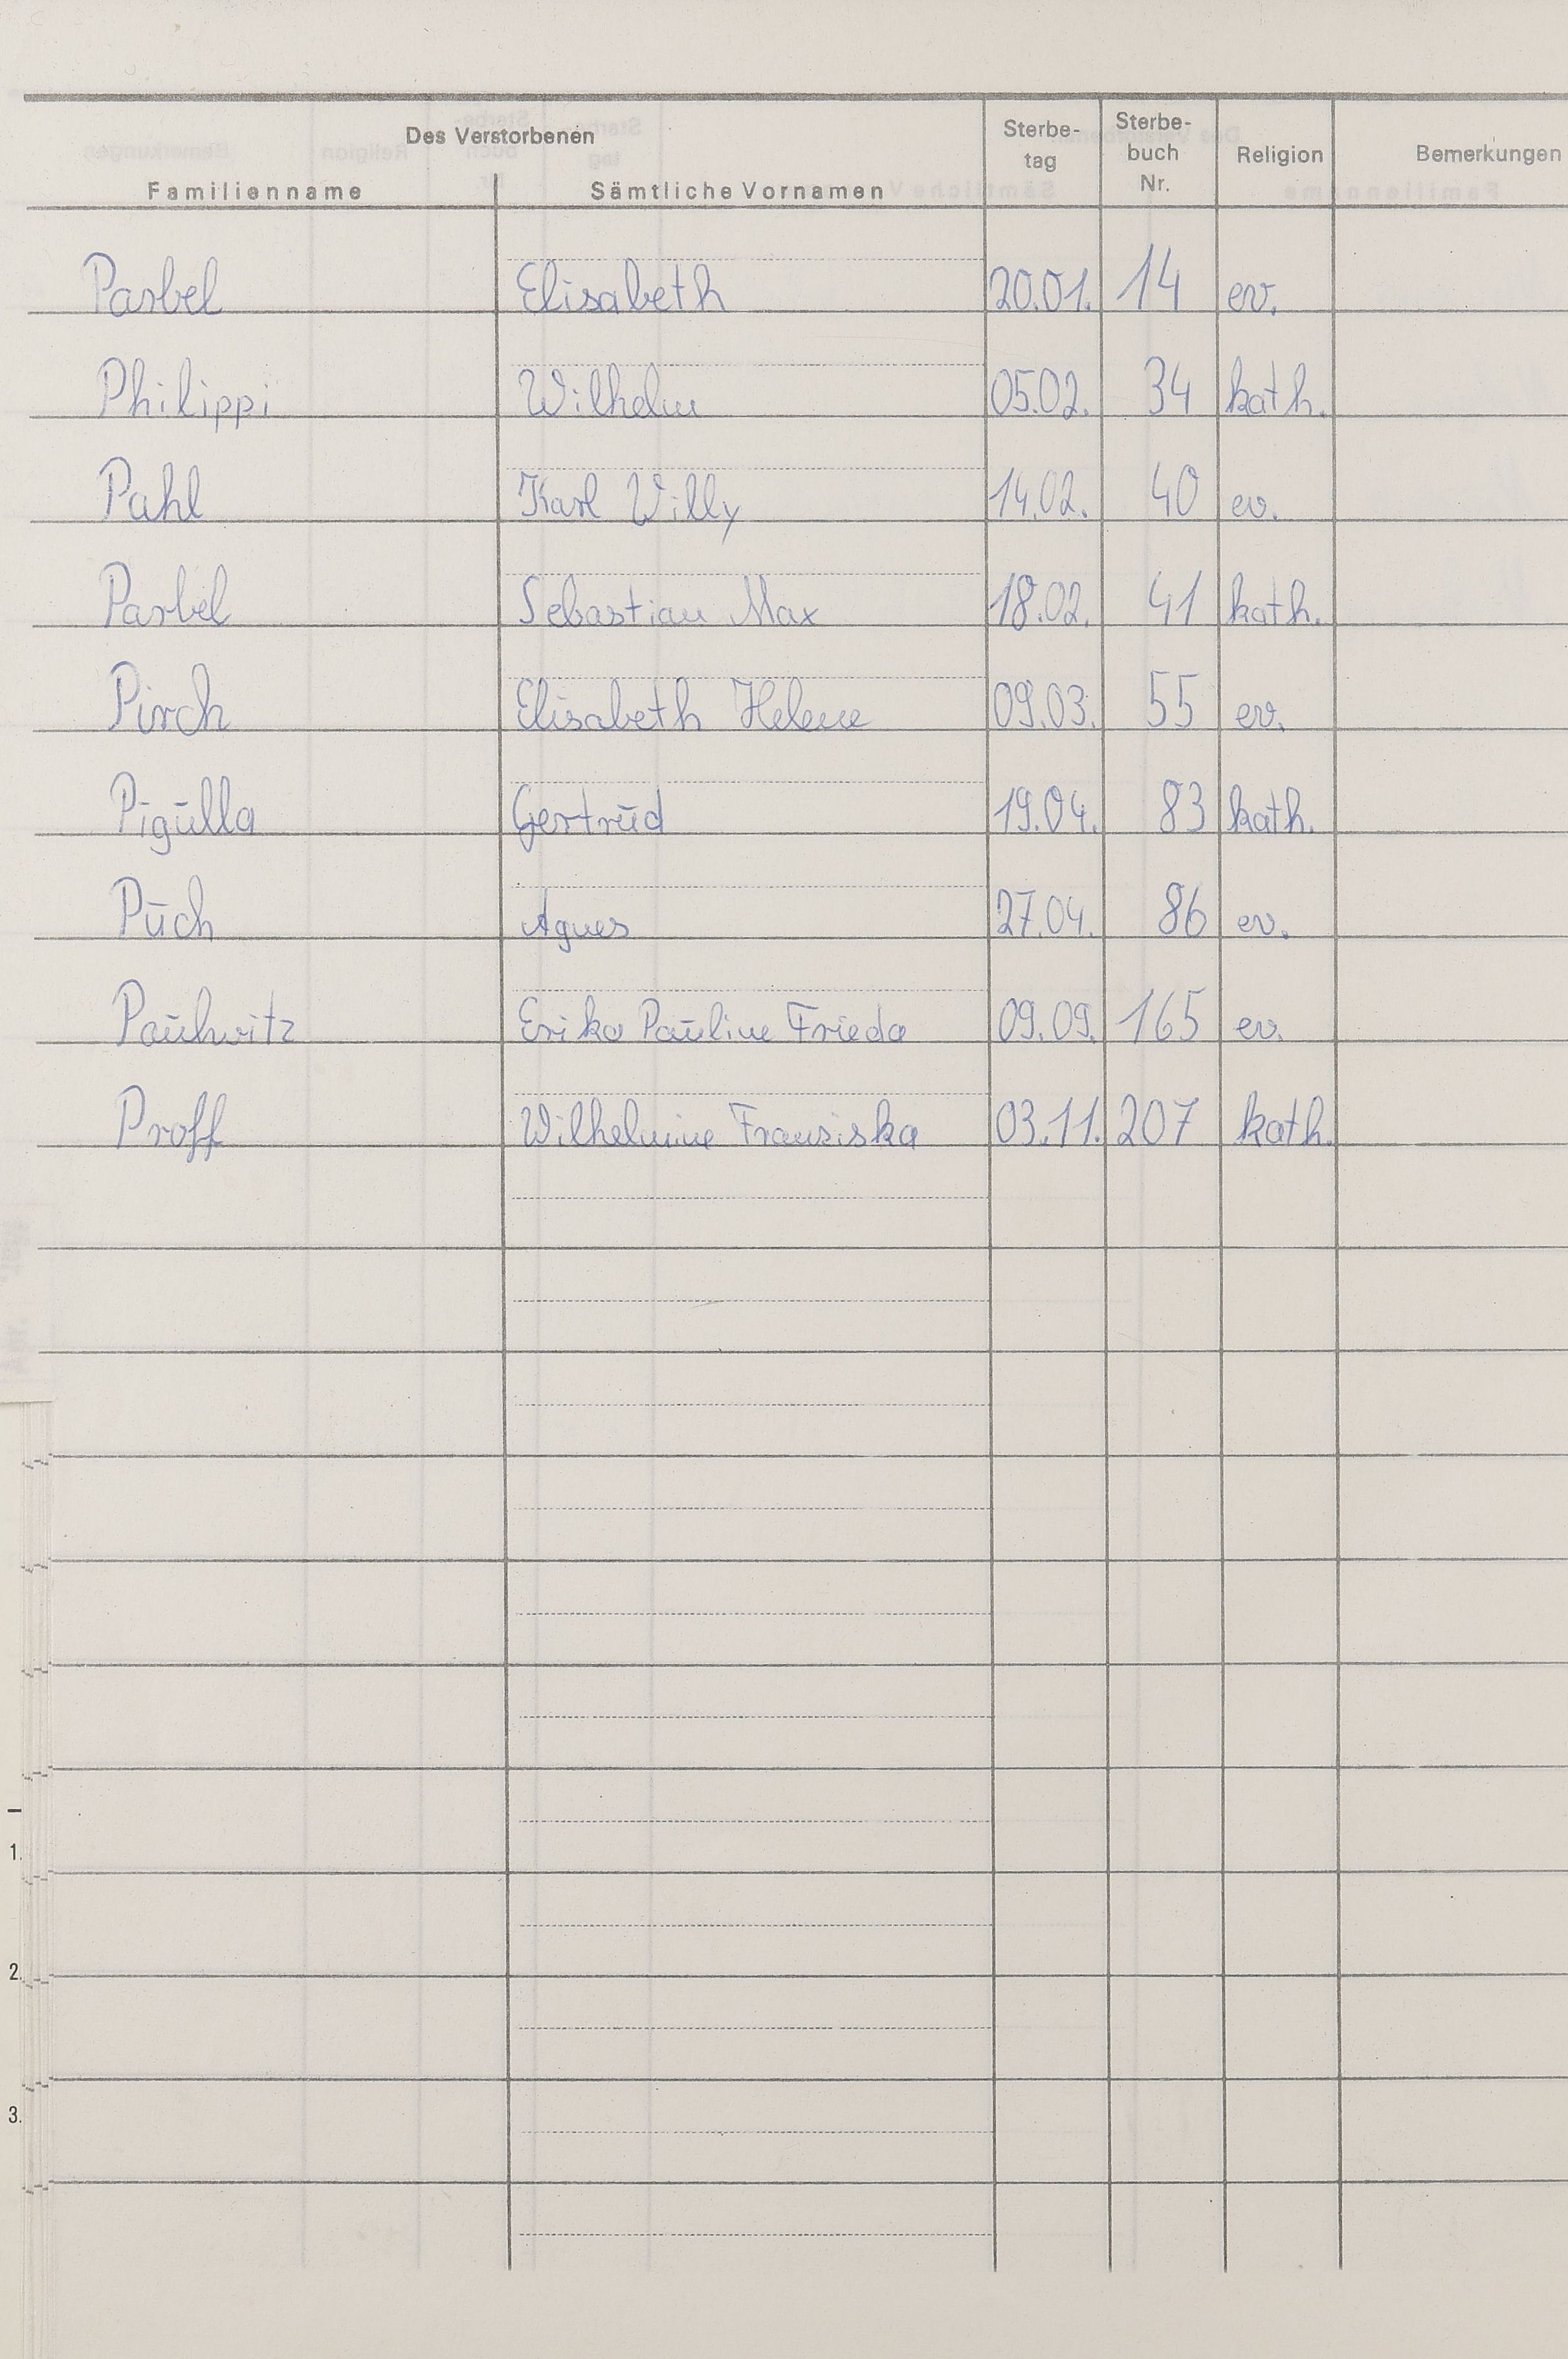 Des Verstorbenen
Familienname Sämtliche Vornamen Sterbe-tag Sterbe-buch Nr. Religion Bemerkungen
Parbel Elisabeth 20.01. 14 ev.
Philippi Wilhelm 05.02. 34 kath.
Pahl Karl Willy 14.02. 40 ev.
Parbel Sebastian Max 18.02. 41 kath.
Pirch Elisabeth Helene 09.03. 55 ev.
Pigulla Gertrud 19.04. 83 kath.
Puch Agnes 27.04. 86 ev.
Erika Pauline Frieda 09.09. 165 ev.
Proff Wilhelmine Franziska 03.11. 207 kath.
1.
2.
3.